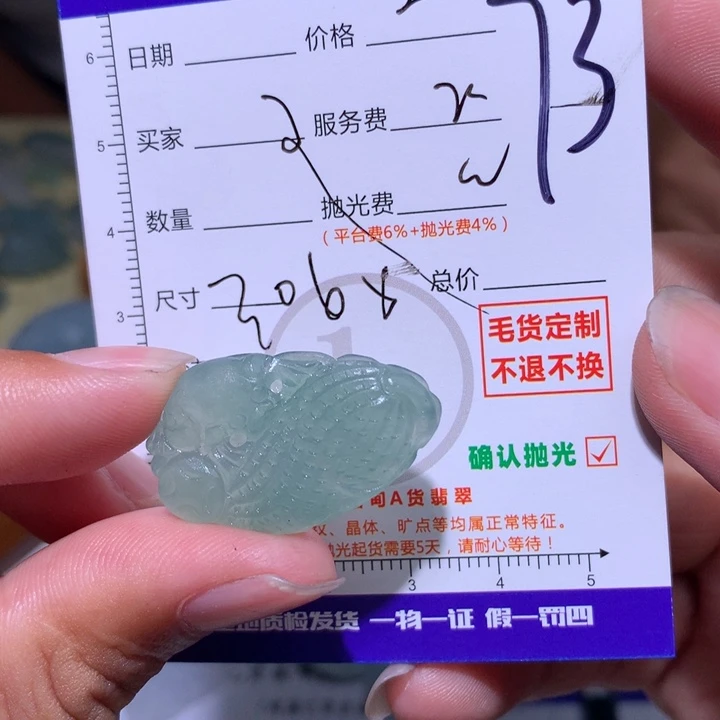 6 日期 价格
73
5 买家 服务费
4 数量 抛光费
(平台费6%+抛光费4%)
3 尺寸 总价
毛货定制
不退不换
确认抛光
甸A货翡翠
、晶体、旷点等均属正常特征。
抛光起货需要5天，请耐心等待！
3 4 5
质检发货 一物一证 假一罚四